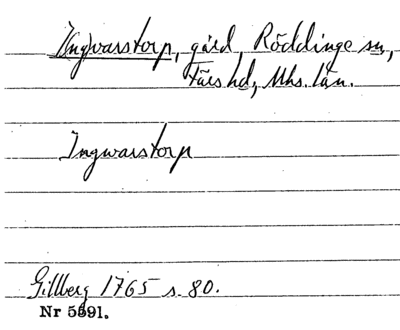 Ungwarstorp, gård, Röddinge sn,
Färs hd, Mhs. län.
Ingwarstorp
Gillberg 1765 s. 80.
Nr 5691.